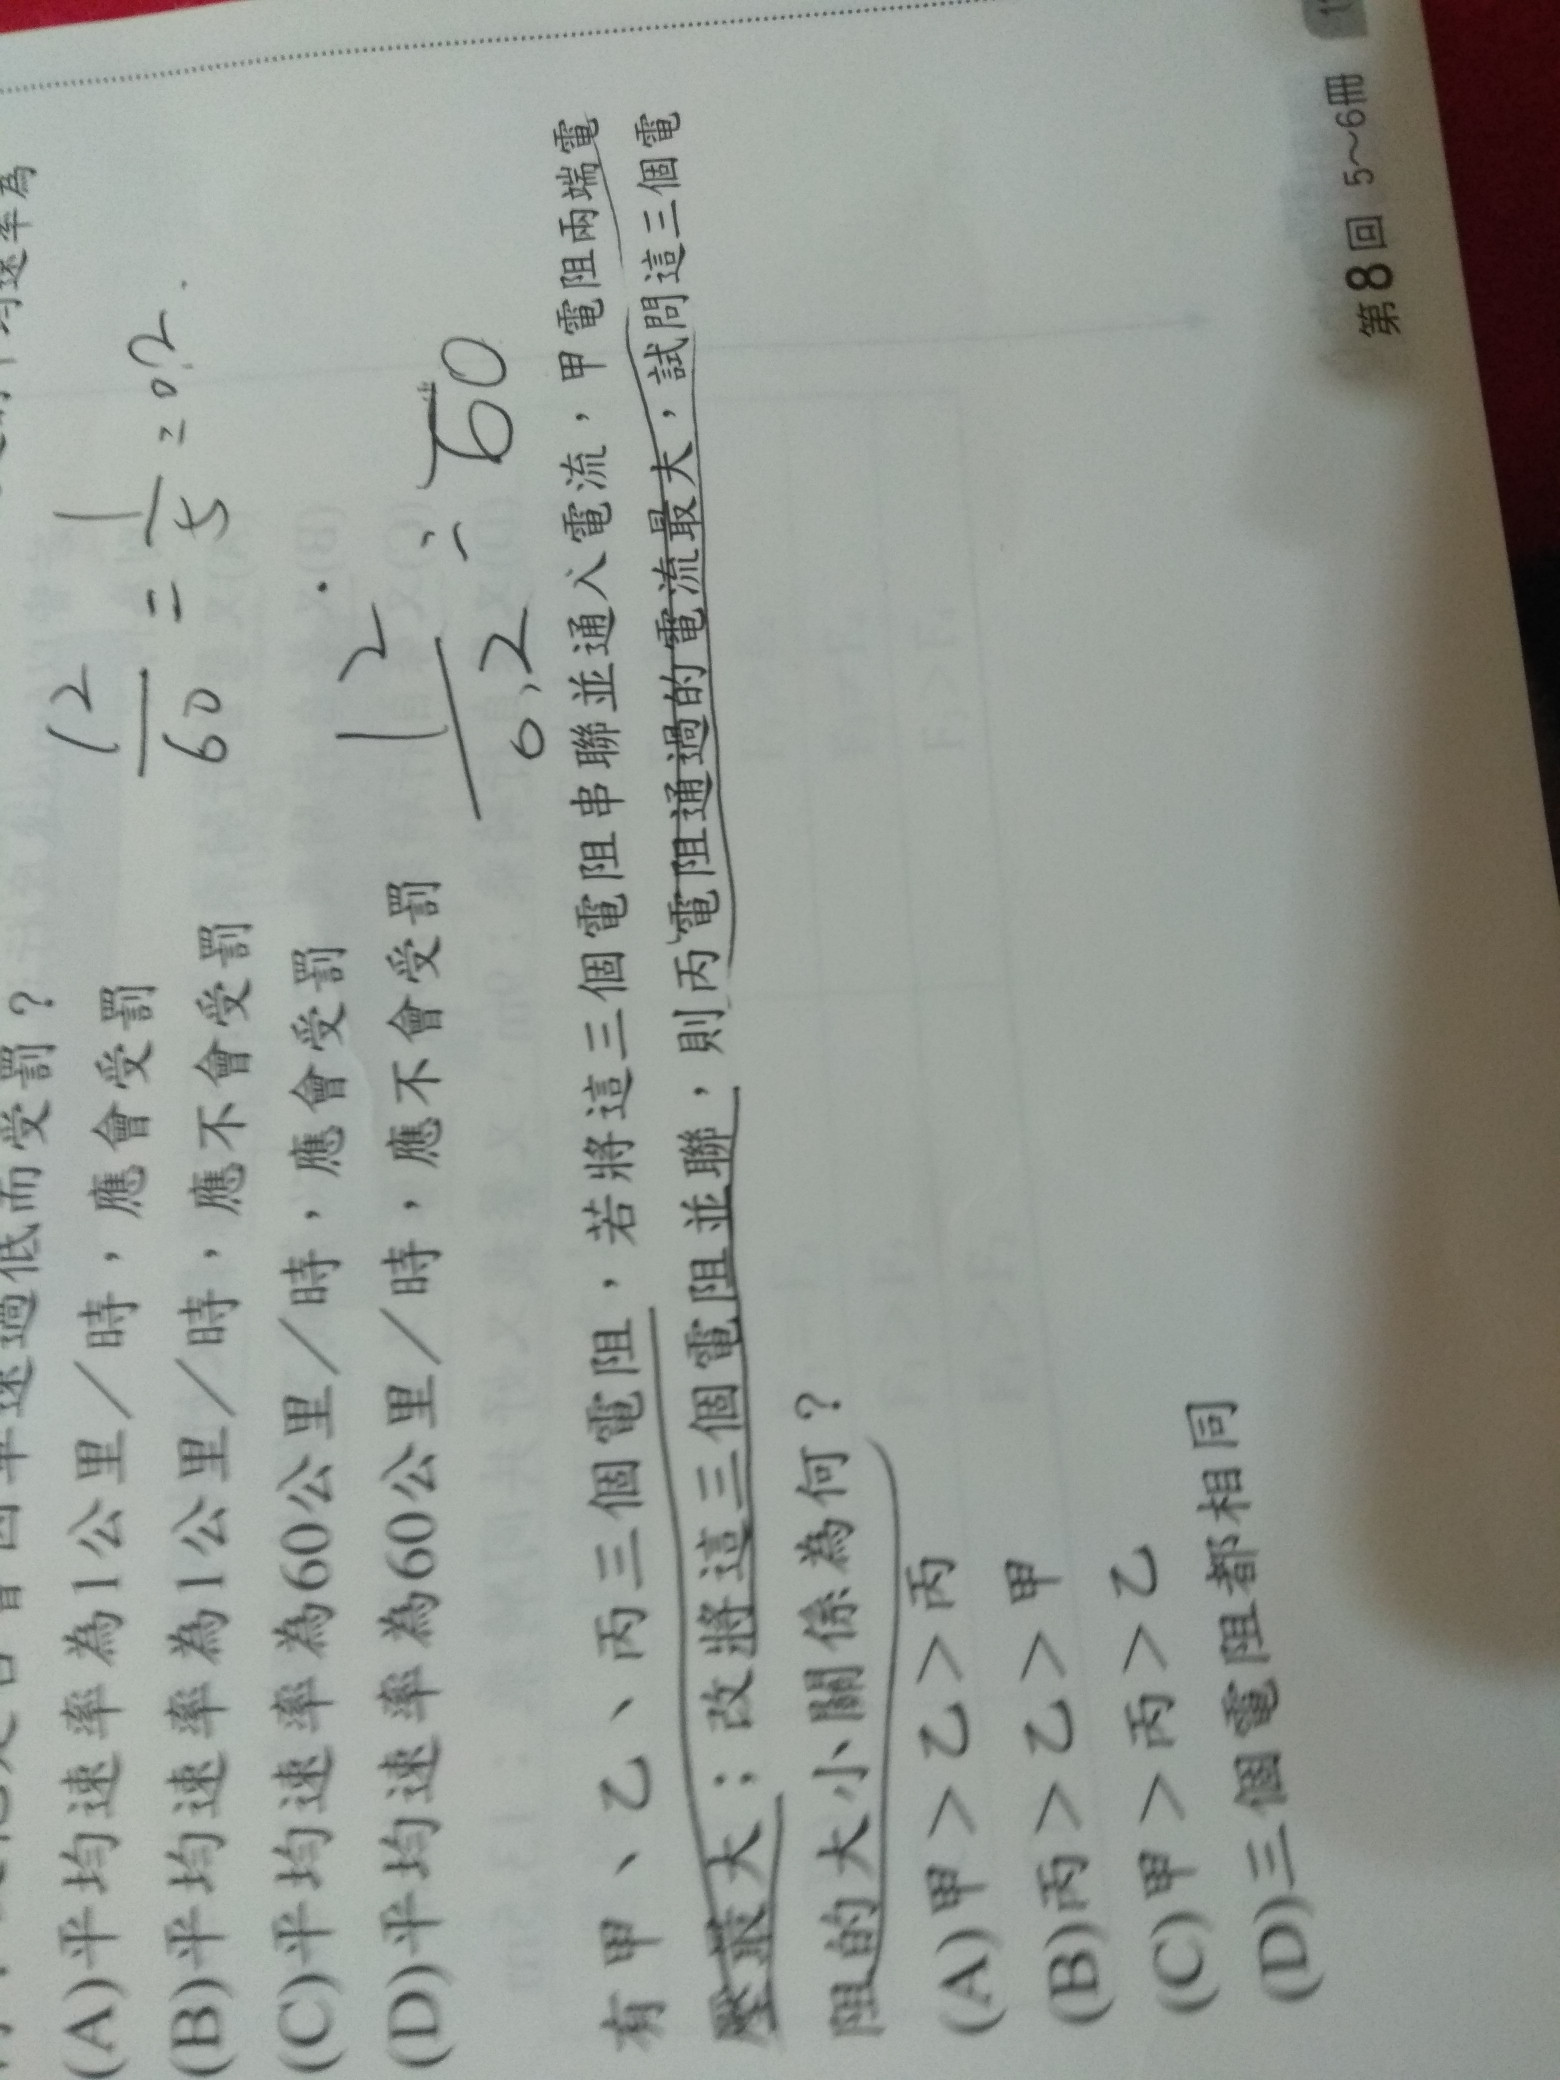 (A)平均速率為1公里／時，應會受罰
(B)平均速率為1公里／時，應不會受罰
(C)平均速率為60公里／時，應會受罰
(D)平均速率為60公里／時，應不會受罰
12/60 = 1/5 = 0.2
12
0.2
60
有甲、乙、丙三個電阻，若將這三個電阻串聯並通入電流，甲電阻兩端電
壓最大；改將這三個電阻並聯，則丙電阻通過的電流最大，試問這三個電
阻的大小關係為何？
(A)甲＞乙＞丙
(B)丙＞乙＞甲
(C)甲＞丙＞乙
(D)三個電阻都相同
第8回 5～6冊